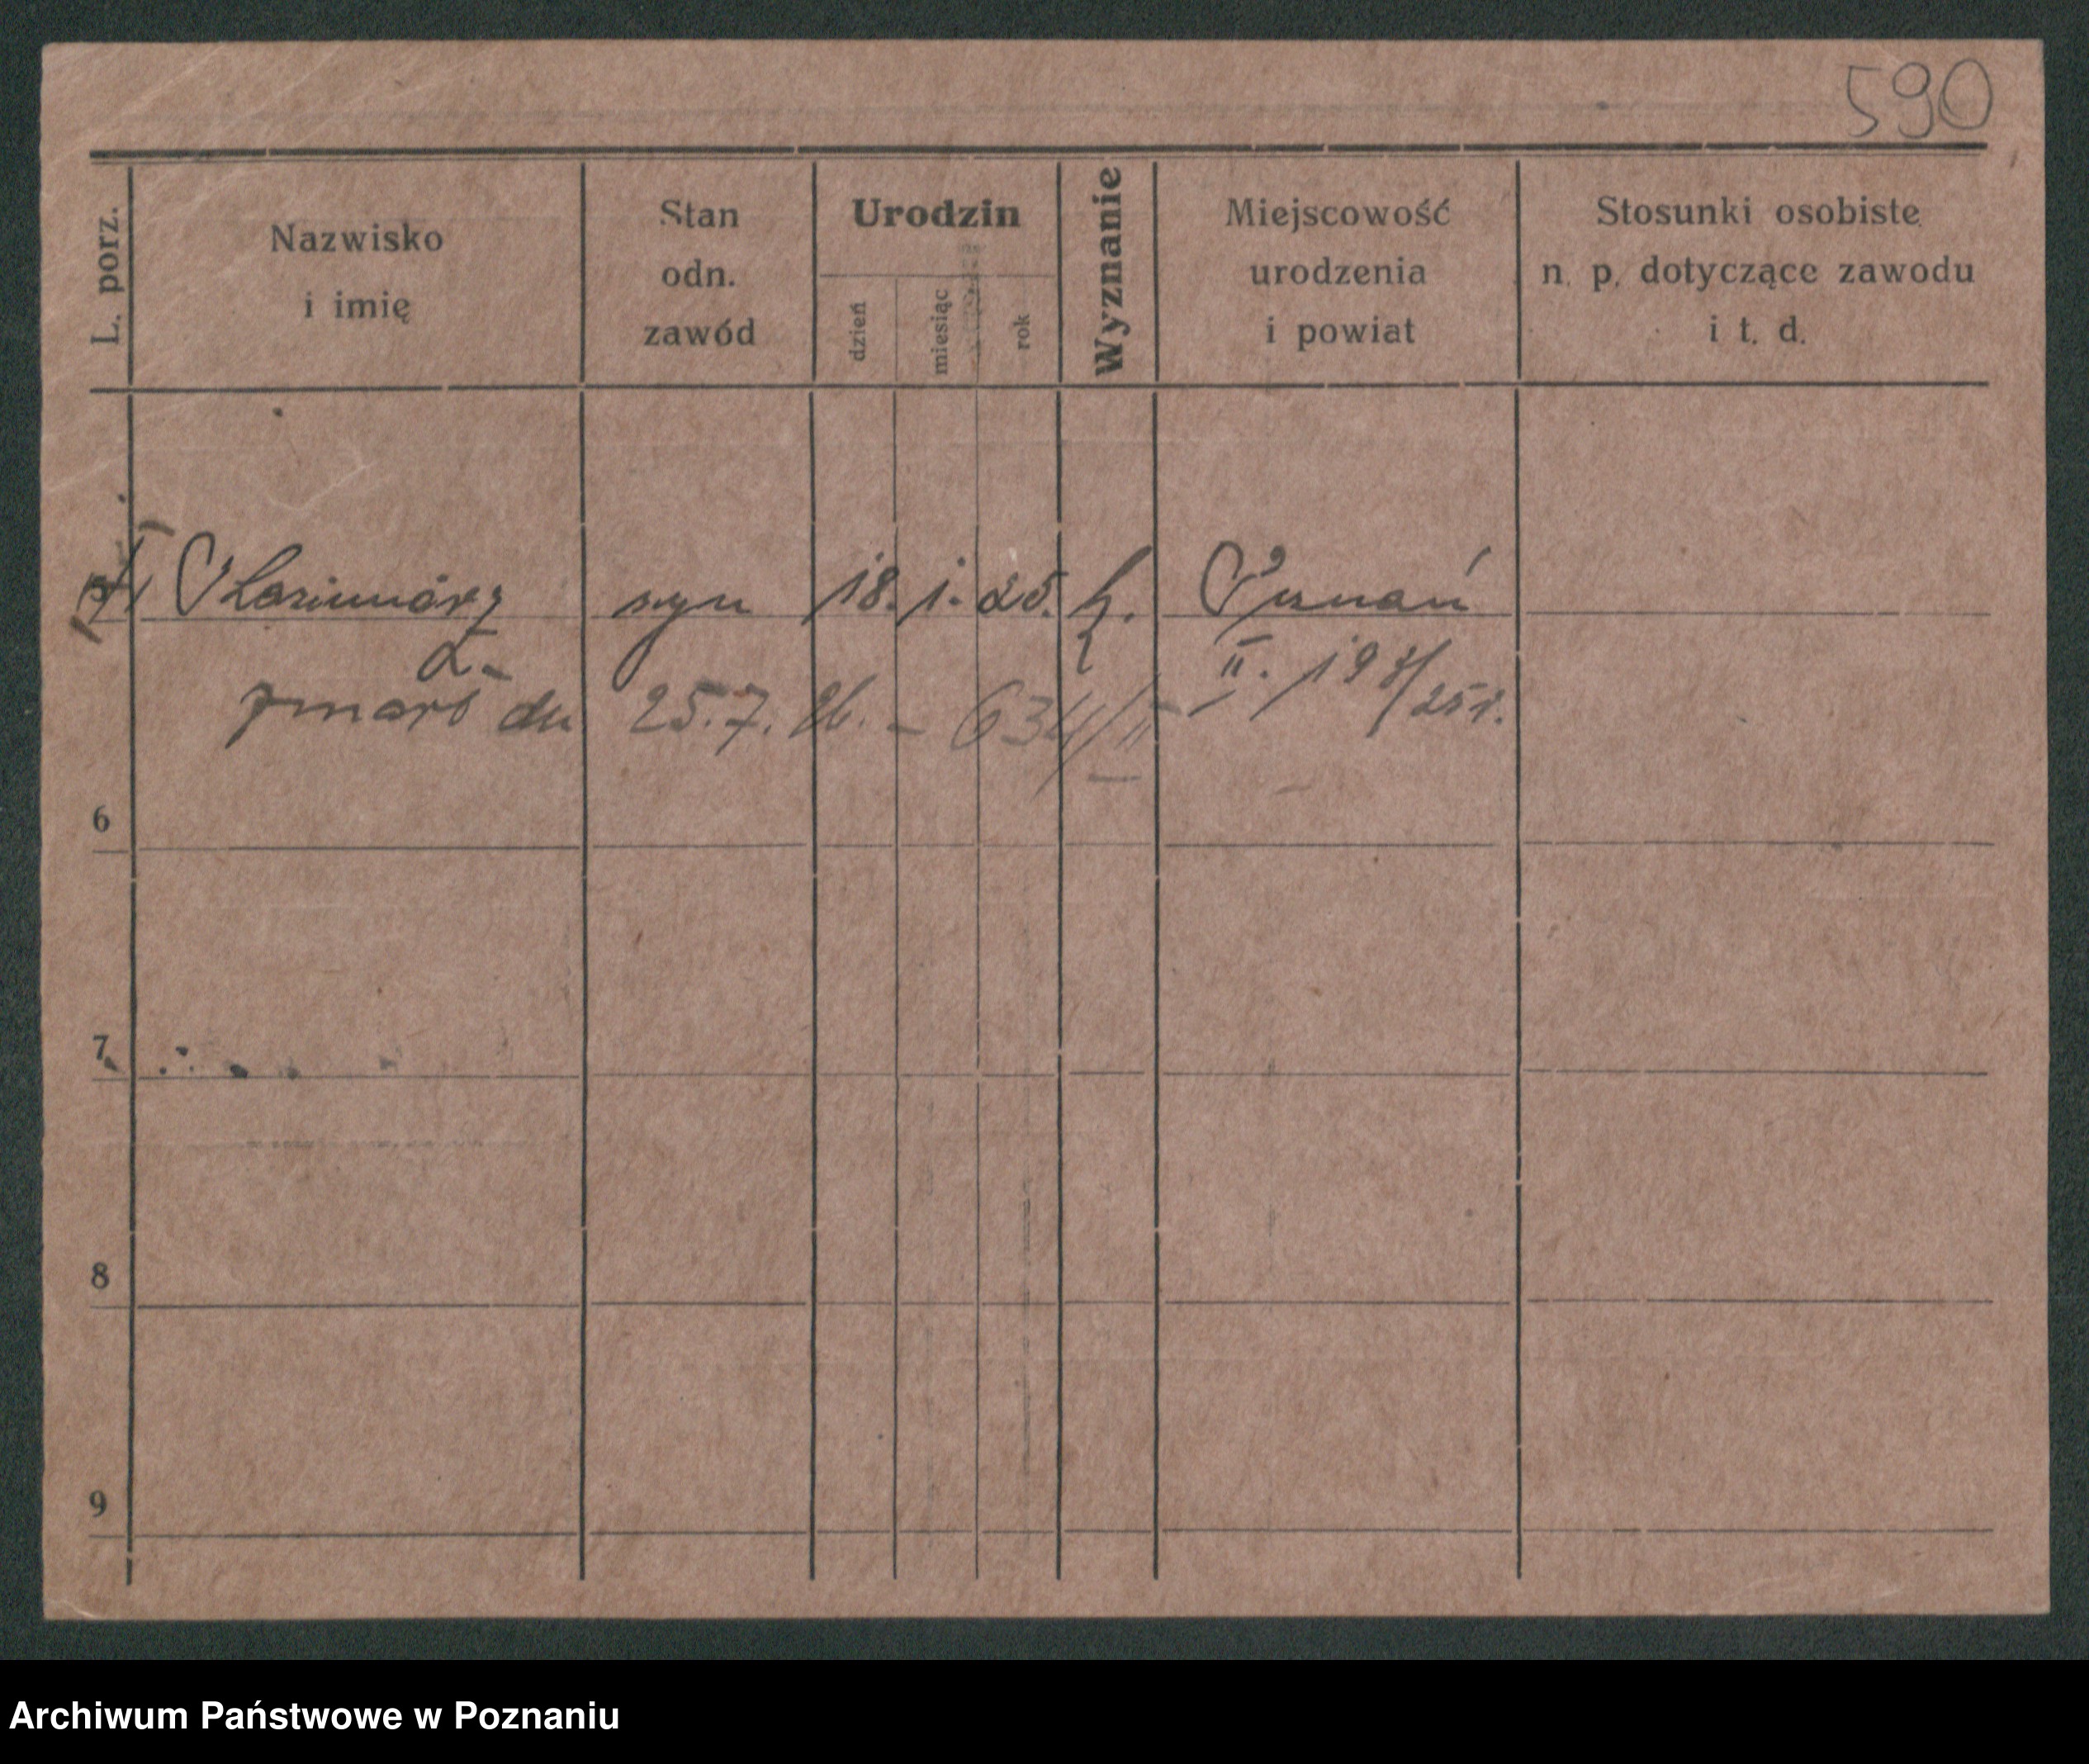 590
L. porz.
Nazwisko
i imię
Stan
odn.
zawód
Urodzin
dzień
miesiąc
rok
Wyznanie
Miejscowość
urodzenia
i powiat
Stosunki osobiste
n. p. dotyczące zawodu
i t. d.
5 Kazimierz syn 18. 1. 25. k. Poznań
zmarł dn 25. 7. 26. - 634/II
6
7
8
9
Archiwum Państwowe w Poznaniu